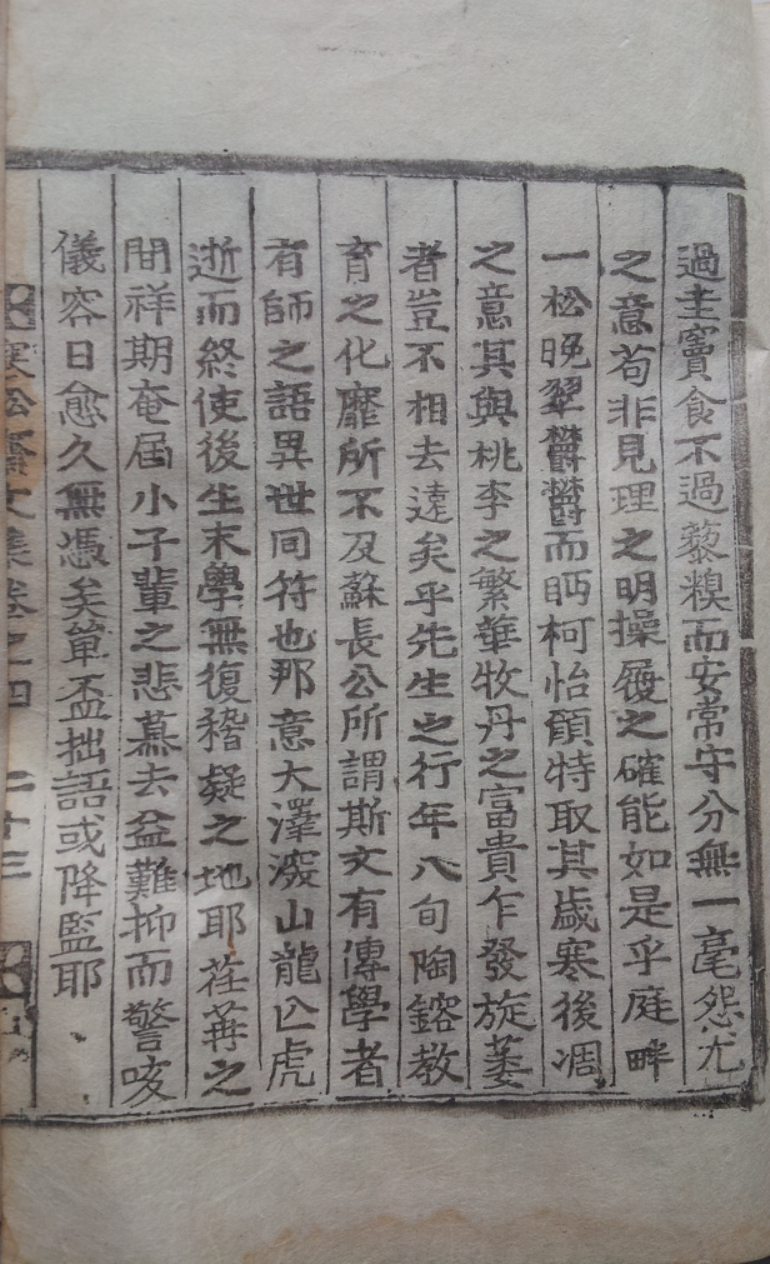 過圭竇食不過藜糗而安常守分無一毫怨尤
之意苟非見理之明操履之確能如是乎庭畔
一松晩翠欝欝而眄柯怡顔特取其歲寒後凋
之意其與桃李之繁華牧丹之富貴乍發旋萎
者豈不相去遠矣乎先生之行年八旬陶鎔教
育之化靡所不及蘇長公所謂斯文有傳學者
有師之語異世同符也那意大澤潑山龍亡虎
逝而終使後生末學無復稽疑之地耶荏苒之
間祥期奄届小子輩之悲慕去益難抑而警咳
儀容日愈久無憑矣單盃拙語或降監耶
寒松齋文集卷之四 二十三